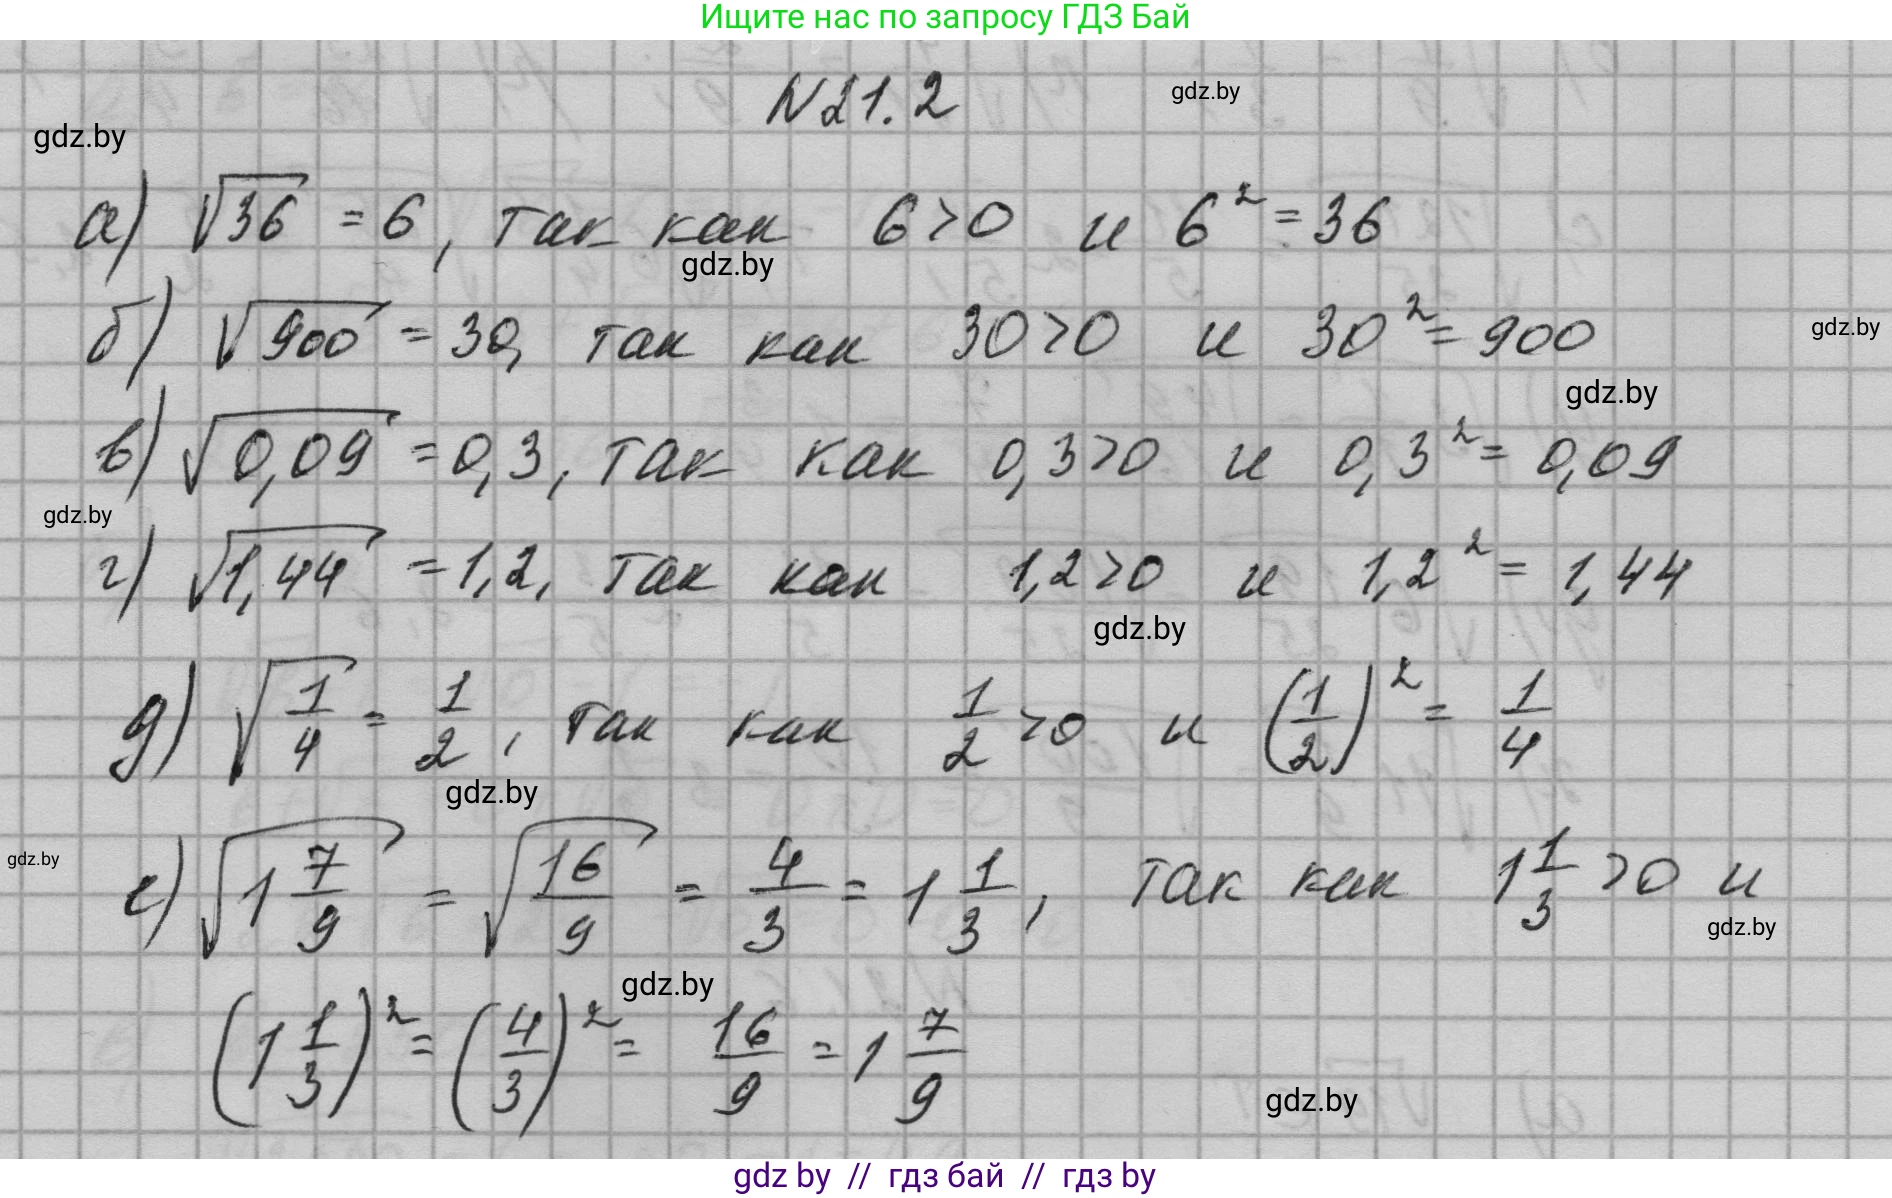 Ищите нас по запросу ГДЗ Бай
N21.2
gdz.by
gdz.by
а) √36 = 6, так как 6>0 и 6² = 36
gdz.by
б) √900 = 30, так как 30>0 и 30² = 900
gdz.by
gdz.by
в) √0,09 = 0,3, так как 0,3>0 и 0,3² = 0,09
gdz.by
г) √1,44 = 1,2, так как 1,2>0 и 1,2² = 1,44
gdz.by
д) √(1/4) = 1/2, так как 1/2 >0 и (1/2)² = 1/4
gdz.by
gdz.by
е) √(1 7/9) = √(16/9) = 4/3 = 1 1/3, так как 1 1/3 >0 и
gdz.by
gdz.by
(1 1/3)² = (4/3)² = 16/9 = 1 7/9
gdz.by
gdz by // гдз бай // гдз by